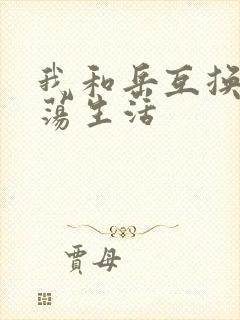 我和岳互换
荡生活
贾母